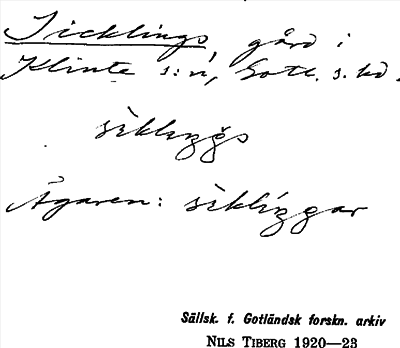 Sicklings, gård i
Klinte s:n, Gotl. s. hd.
sìklıŋgs
Ägaren: sìklíŋgar
Sällsk. f. Gotländsk forskn. arkiv
NILS TIBERG 1920—23